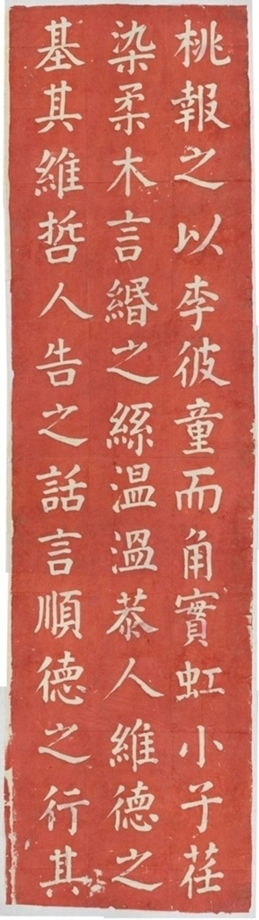 桃報之以李彼童而角實虹小子荏
染柔木言緡之絲温温恭人維德之
基其維哲人告之話言順德之行其